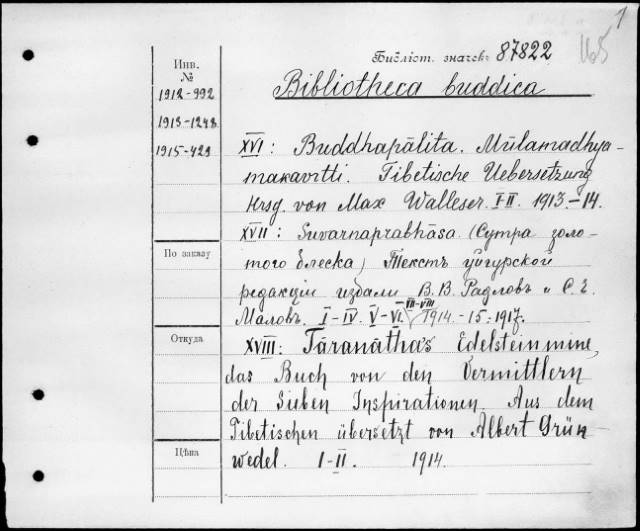 1
165
Библіот. значекъ 87822
Bibliotheca buddica
Инв.
№
1912-992
1913-1248
1915-423
XVI: Buddhapālita. Mūlamadhya-
makavrtti. Tibetische Uebersetzung
Hrsg. von Max Walleser. I-II. 1913.-14.
XVII: Suvarnaprabhāsa (Сутра золо-
того блеска) Текстъ уйгурской
редакціи издали В. В. Радловъ и С. Е.
Маловъ. I-IV. V-VI. VII-VIII 1914.-15.-1917.
По заказу
Откуда
Цѣна
XVIII: Tāranātha's Edelsteinmine,
das Buch von den Vermittlern
der Sieben Inspirationen Aus dem
Tibetischen übersetzt von Albert Grün-
wedel. I-II. 1914.